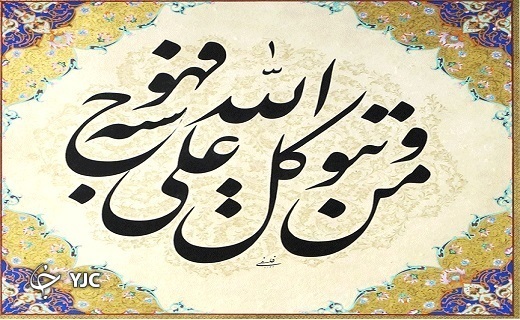 و من يتوكل على الله فهو حسبه
YJC